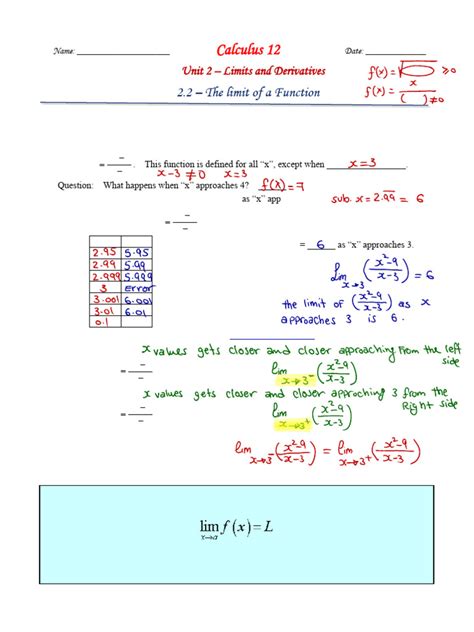 Name: ____________________ Calculus 12 Date: ______________
Unit 2 – Limits and Derivatives f(x) = √▭ ≥0
2.2 – The limit of a Function f(x) = x/( ) ≠0
= —. This function is defined for all “x”, except when x = 3.
x-3 ≠ 0 x = 3
Question: What happens when “x” approaches 4? f(x) = 7
as “x” app sub. x = 2.99 = 6
= —
= 6 as “x” approaches 3.
2.95 5.95
2.99 5.99
2.999 5.999
3 Error
3.001 6.001
3.01 6.01
0.1
lim x→3 (x²-9/x-3) = 6
the limit of (x²-9/x-3) as x
approaches 3 is 6.
x values gets closer and closer approaching from the left
side
= — lim x→3⁻ (x²-9/x-3)
x values gets closer and closer approching 3 from the
Right side
= — lim x→3⁺ (x²-9/x-3)
lim x→3⁻ (x²-9/x-3) = lim x→3⁺ (x²-9/x-3)
lim x→a f(x) = L